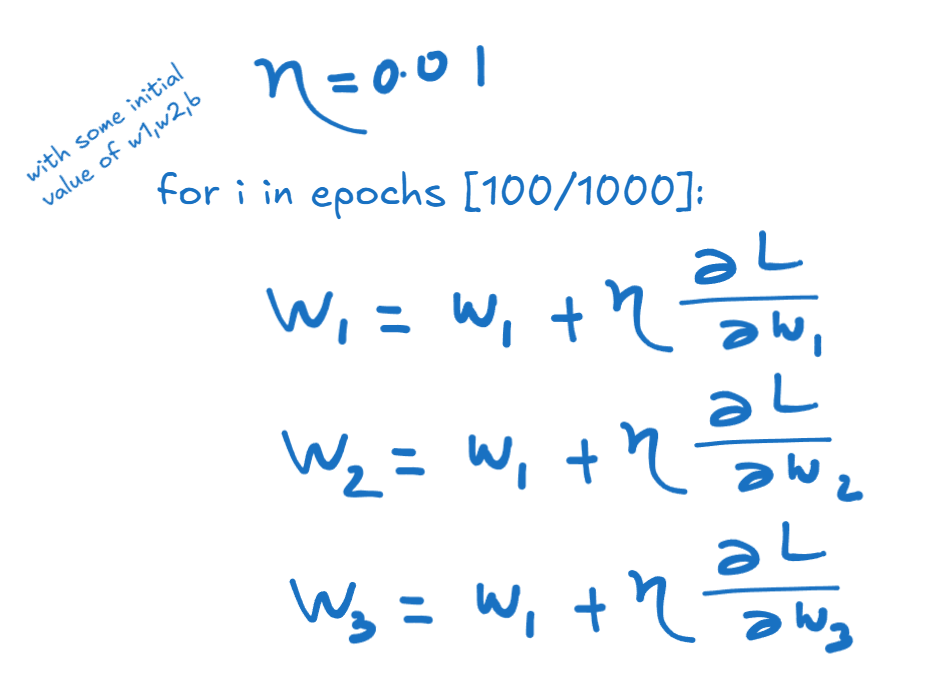 η = 0.01
with some initial
value of w1,w2,b
for i in epochs [100/1000]:
W₁ = W₁ + η ∂L/∂W₁
W₂ = W₁ + η ∂L/∂W₂
W₃ = W₁ + η ∂L/∂W₃